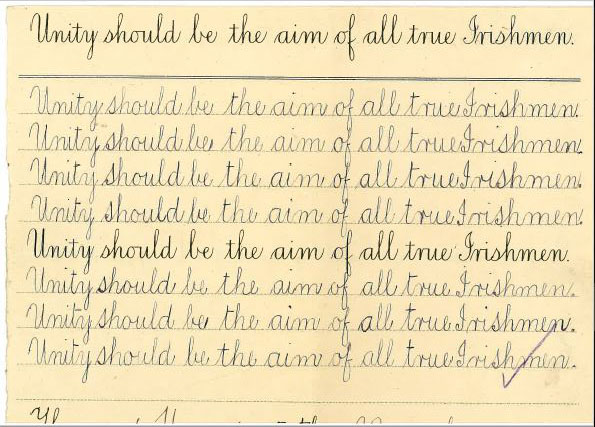 Unity should be the aim of all true Irishmen.
Unity should be the aim of all true Irishmen.
Unity should be the aim of all true Irishmen.
Unity should be the aim of all true Irishmen.
Unity should be the aim of all true Irishmen.
Unity should be the aim of all true Irishmen.
Unity should be the aim of all true Irishmen.
Unity should be the aim of all true Irishmen.
Unity should be the aim of all true Irishmen.